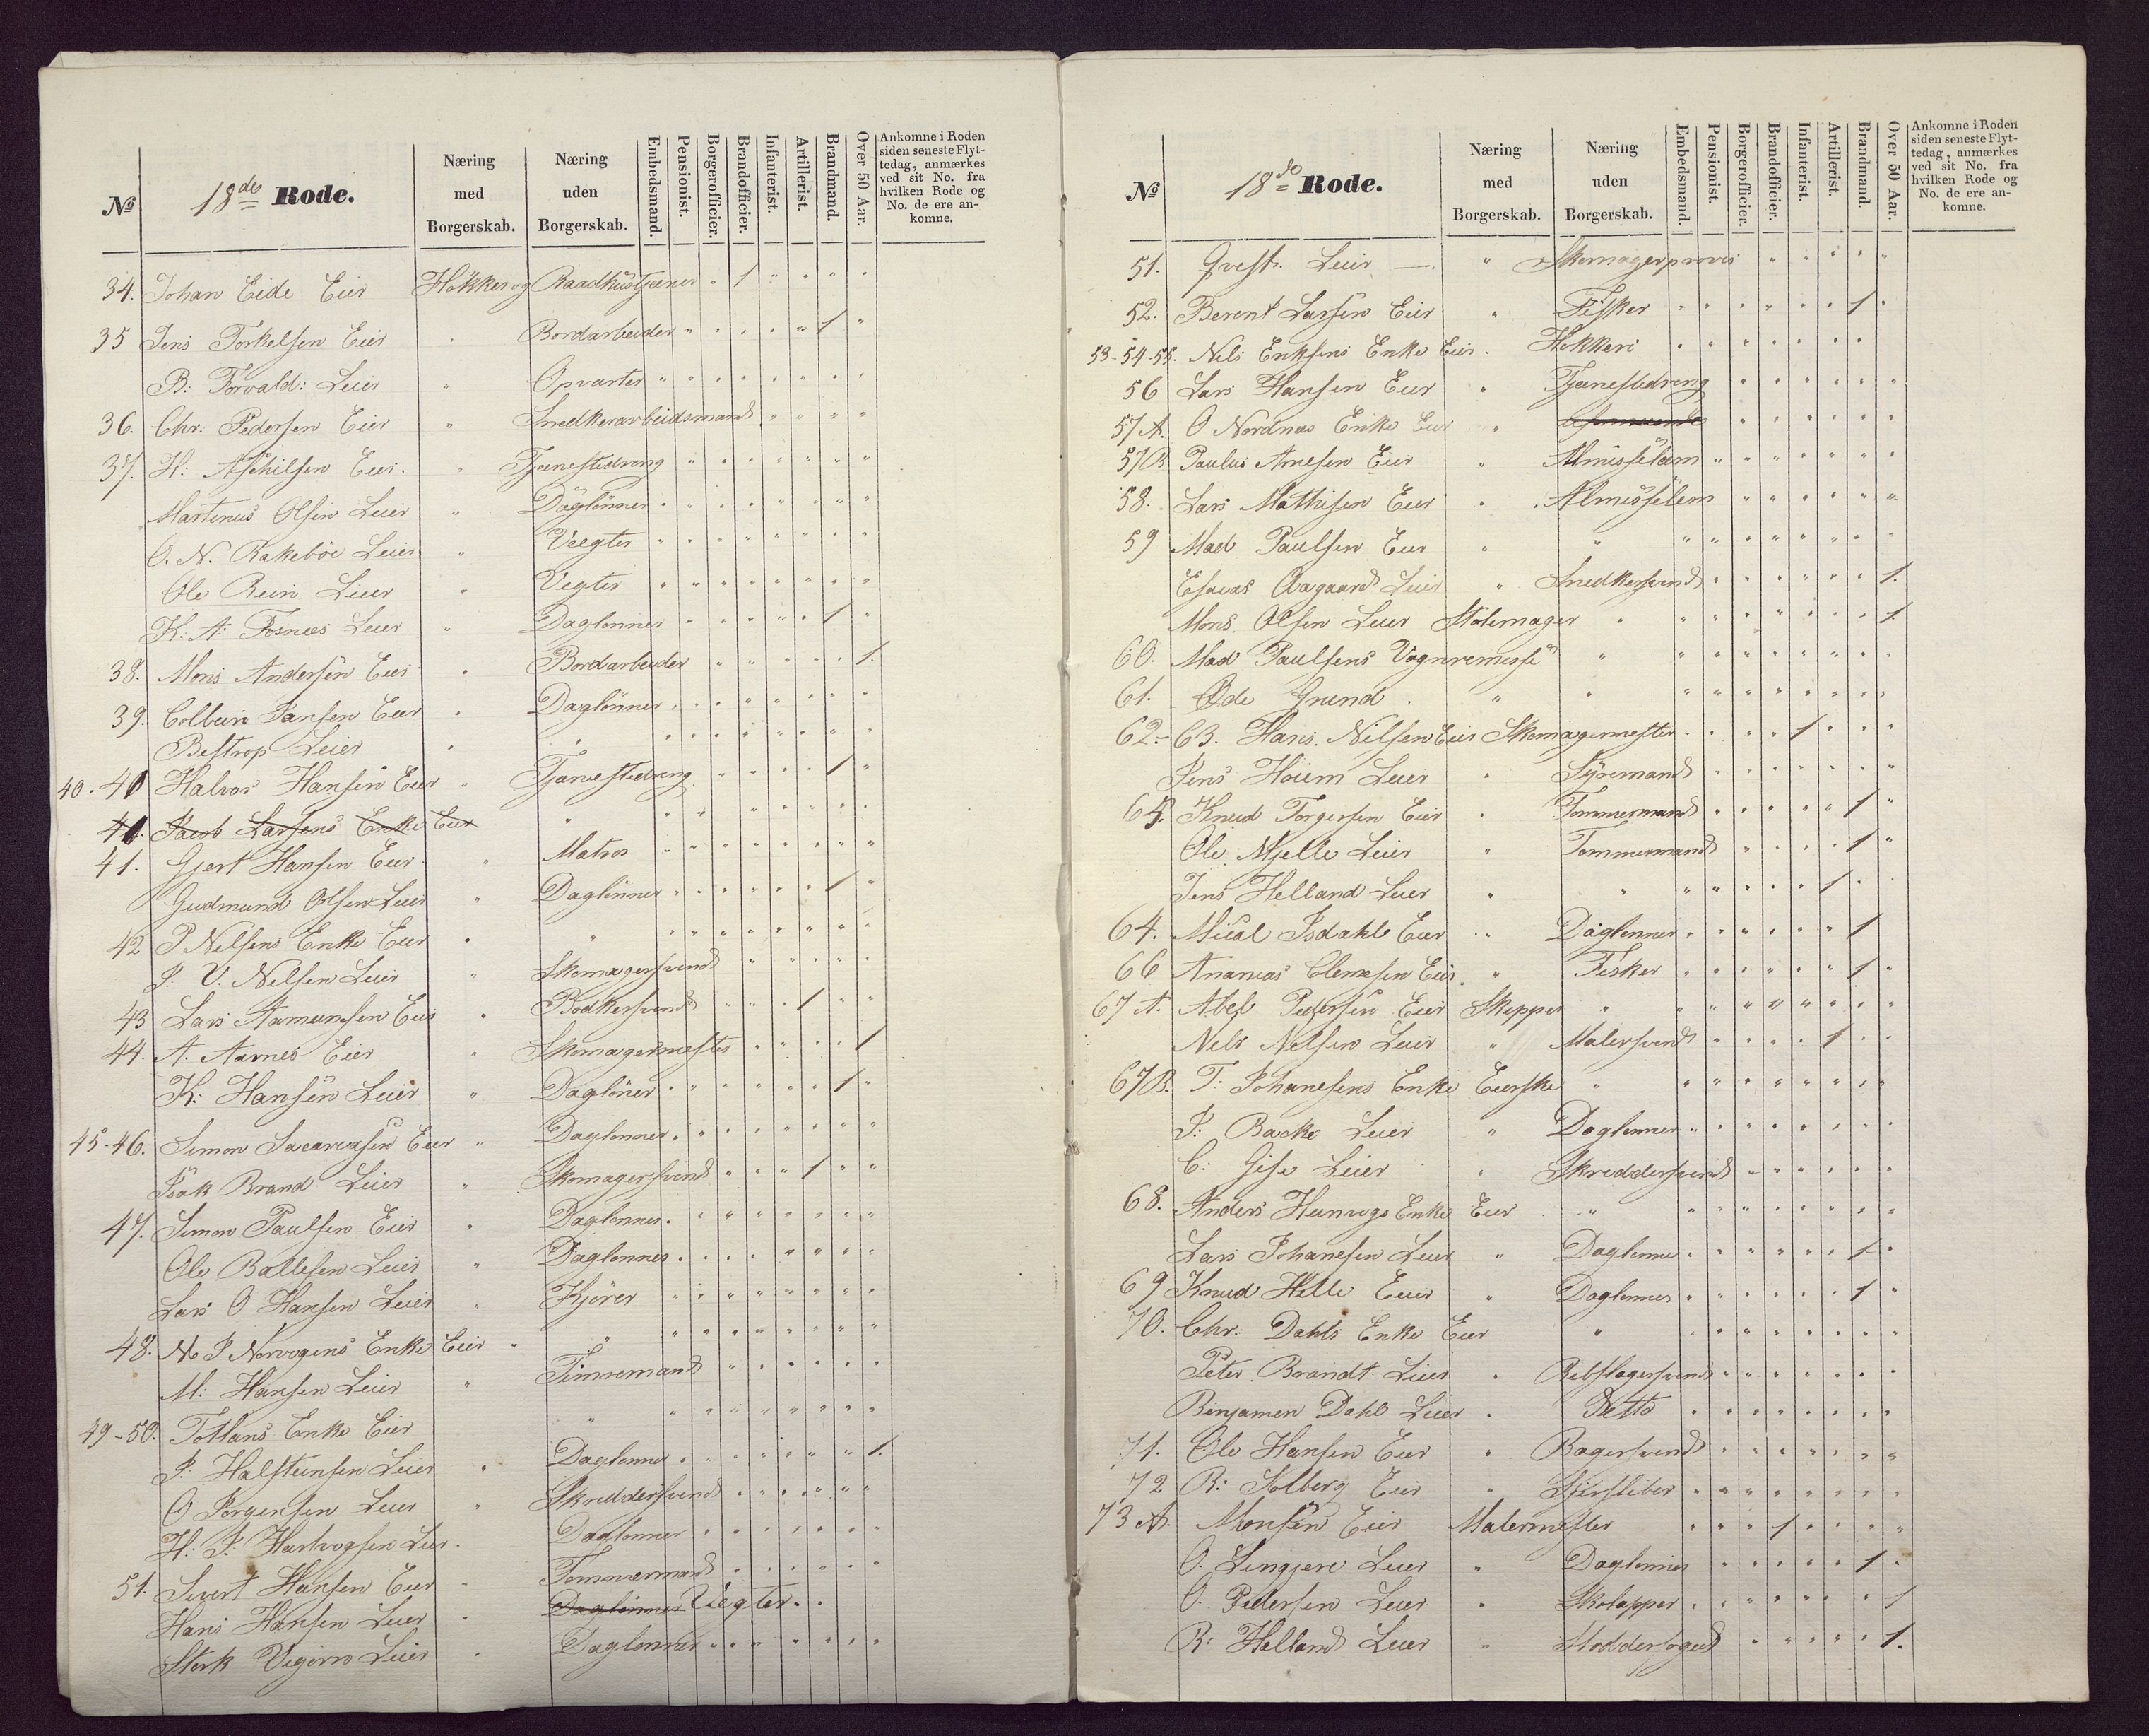 № 18de Rode. Næring med Borgerskab. Næring uden Borgerskab. Embedsmand. Pensionist. Borgerofficier. Brandofficier. Infanterist. Artillerist. Brandmand. Over 50 Aar. Ankomne i Roden siden seneste Flyttedag, anmærkes ved sit No. fra hvilken Rode og No. de ere ankomne.
34. Johan Eide Eier Høkker og Raadhustjener " 1 " " " "
35 Jens Torkelsen Eier " Bordarbeider " " " " " 1 "
B: Torvald: Leier " Opvarter " " " " " " " "
36. Chr: Pedersen Eier " Snedkerarbeidsmand " " " "
37. H: Aschilsen Eier. " Tjenestedreng " " " " " " "
Martinus Olsen Leier " Daglönner " " " " " " " "
O. N. Rakebøe Leier " Vægter " " " " " " " "
Ole Rein Leier " Vegter " " " " " " " "
K: A: Fosnæs Leier " Daglønner " " " " " 1 "
38. Mons Andersen Eier " Bordarbeider " " " " " 1.
39. Colbein Jansen Eier " Daglönner " " " " " " " "
Bestrop Leier " " " " " " " " " "
40. 41 Halvor Hansen Eier " Tjenestedreng " " " " 1 "
41. Jacob Larsens Enke Eier " " " " " " " "
41. Gjert Hansen Eier " Matros " " " " " " " "
Gudmund Olsen Leier " Daglønner " " " " " " 1 "
42 P Nelsens Enke Eier " " " " " " " " " "
J. V. Nelsen Leier " Skomagersvend " " " " "
43 Lars Aamunsen Eier " Bødkersvend " " " 1 " "
44. A. Aarnes Eier " Skomagermester " " " " 1
K: Hansen Leier " Daglöner " " " " " " 1 "
45-46. Simon Sacariasen Eier " Daglønner " " " " " " " "
Isak Brand Leier " Skomagersvend " " " 1 " "
47. Simon Paulsen Eier " Daglønner " " " " " " " "
Ole Ballesen Leier " Daglønner " " " " " " " "
Lars O Hansen Leier " Kjörer " " " " " " " "
48. N P Norvogens Enke Eier " " " " " " " " " "
M: Hansen Leier " Timremand " " " " " "
49-50. Totlans Enke Eier " " " " " " " " "
J: Halsteinsen Leier " Daglønner " " " " " " " 1.
O Jörgensen Leier " Skreddersvend " " " " " "
H: J: Hartvogsen Leier " Daglønner " " " " " " "
51. Sivert Hansen Eier " Tommermand " " " " " "
Hans Hansen Leier " Daglönner Vegter " "
Sterk Vigörn Leier " Daglønner " " " " " " "
№ 18de Rode. Næring med Borgerskab. Næring uden Borgerskab. Embedsmand. Pensionist. Borgerofficier. Brandofficier. Infanterist. Artillerist. Brandmand. Over 50 Aar. Ankomne i Roden siden seneste Flyttedag, anmærkes ved sit No. fra hvilken Rode og No. de ere ankomne.
51. Leier — " " " " " "
52. Berent Larsen Eier " Fisker " " " " " " 1 "
53-54-55. Nels Eriksens Enke Eier " Høkkeri " " " " " " "
56 Lars Hansen Eier " Tjenestedreng " " " " " "
57 A. O Nordnæs Enke Eier " " " " " " "
57 B Paulus Arnesen Eier " Almisselem " " " " " " "
58. Lars Mathisen Eier " Almisselem " " " " " "
59 Mad Paulsen Eier " " " " " " " " " "
Esaias Aagaard Leier " Snedkersvend " " " " " " 1.
Mons Olsen Leier Stolemager " " " " " " " " 1.
60. Mad Paulsens Vognremisse " " " " " " " " "
61. Øde Grund. " " " " " " " " " "
62-63. Hans Nilsen Eier Skomagermester " " " " 1 " " "
Jens Höiem Leier " Styremand " " " " " " "
Knud Torgersen Eier " Tommermand " " " " " 1 "
Ole Mjelle Leier " Tommermand " " " " 1 "
Jens Helland Leier " " " " " " " 1 " "
64. Mical Isdahl Eier " Daglønner " " " " " " 1
66 Ananias Clemesen Eier " Fisker " " " " " " 1 "
67 A. Abel Pedersen Eier Skipper " " " " " " " " "
Nels Nelsen Leier " Malersvend " " " " 1 " "
67 B. T: Johanesens Enke Eierske " " " " " " " " "
J: Backe Leier " Daglønner " " " " " " " "
C: Gise Leier " Skreddersvend " " " " " "
68. Anders Hunvogs Enke Eier " " " " " " " " "
Lars Johanesen Leier " Daglønner " " " " " " 1 "
69 Knud Helle Eier " Daglønner " " " " " " 1 "
70. Chr: Dahls Enke Eier " " " " " " " "
Peter Brandt Leier " Rebslagersvend " " " " " " "
Benjamen Dahl Leier " Detto " " " " " " " "
71. Ole Hansen Eier " Bagersvend " " " " " " "
72 R: Solberg Eier " " " " " " " " "
73 A. Monsen Eier Malermester " " " 1 " " "
O. Lingjere Leier " Daglønner " " " " " 1 "
O. Pedersen Leier " Skolapper " " " " " " " 1
R: Helland Leier " Stodderfoged " " " " " 1.